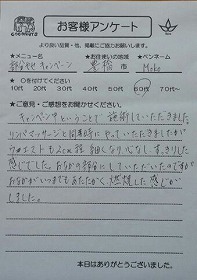 GOENSUTO
お客様アンケート
より良い品質・他、掲載にご協力お願いします。
★メニュー名 ★お住まいの地域 ★ペンネーム
部分やせ キャンペーン 豊橋市 Moko
★ ○を付けてください
10代 20代 30代 40代 50代 60代 70代~
★ご意見・ご感想をお聞かせください。
キャンペーン中ということで、施術していただきました。
リンパマッサージと同時にやっていただきましたが
ウェストも2cm程 細くなり、心なし、すっきりした
感じでした。おなかの部分にしていただいたのですが
おなかがいつまでもあたたかく、燃焼した感じが
しました。
本日はありがとうございました。